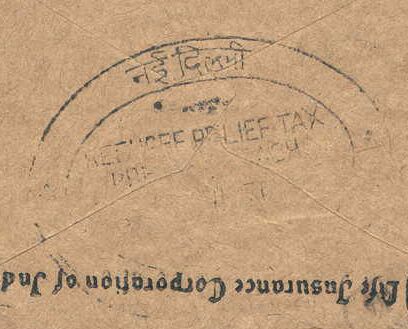 नई दिल्ली
REFUGEE RELIEF TAX
Life Insurance Corporation of Ind